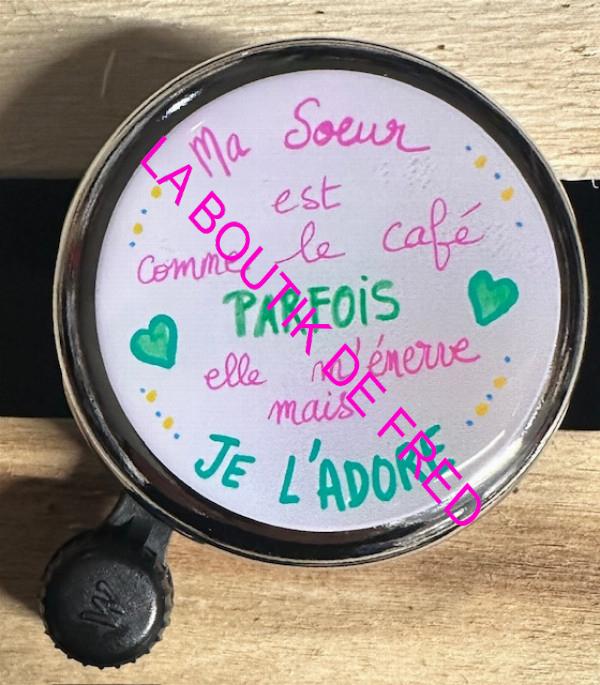 Ma Soeur
est
comme le café
PARFOIS
elle m'énerve
mais
JE L'ADORE
LA BOUTIK DE FRED